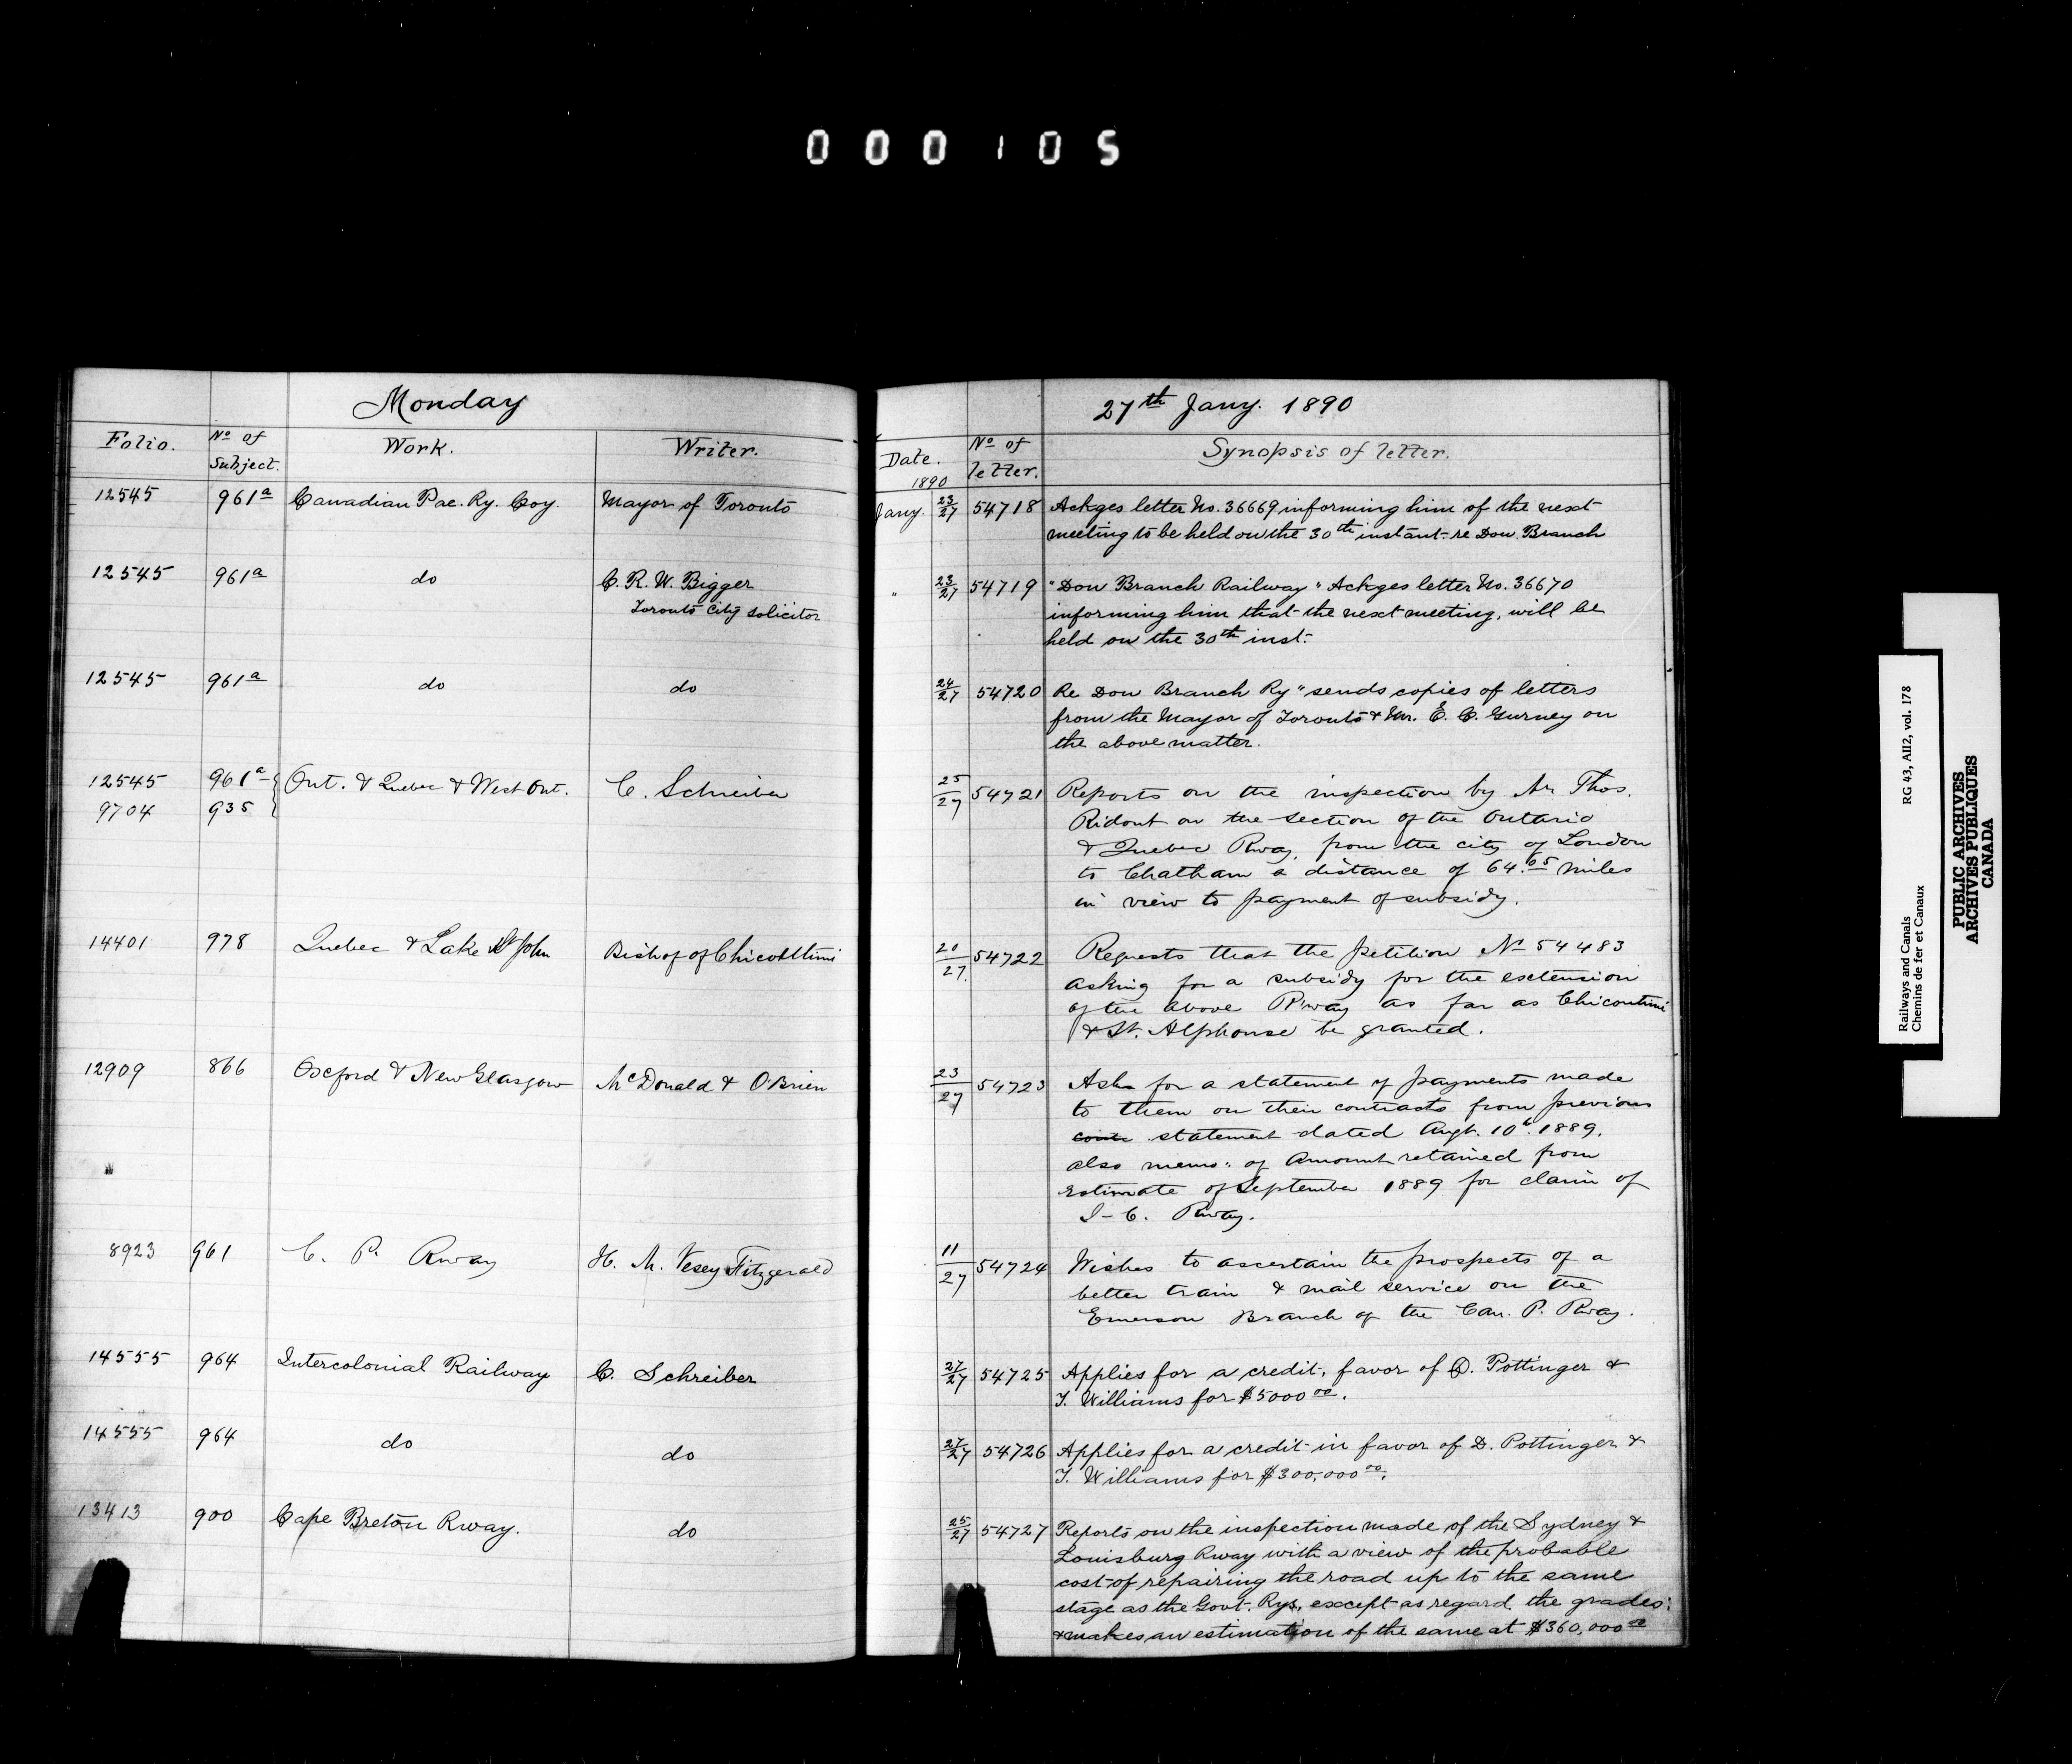 000105
Monday
27th Jany. 1890
Folio.
No of Subject.
Work.
Writer.
Date. 1890
No of letter.
Synopsis of letter.
12545 961a Canadian Pac. Ry. Coy. Mayor of Toronto Jany. 23/27 54718 Ackges letter No. 36669 informing him of the next
meeting to be held on the 30th instant re Don Branch
12545 961a do C. R. W. Bigger " 23/27 54719 "Don Branch Railway" Ackges letter No. 36670
Toronto City Solicitor informing him that the next meeting, will be
held on the 30th inst.
12545 961a do do 24/27 54720 Re Don Branch Ry" sends copies of letters
from the Mayor of Toronto & Mr. E. C. Gurney on
the above matter.
12545 961a Ont. & Quebec & West Ont. C. Schreiber 25/27 54721 Reports on the inspection by Mr Thos.
9704 935 Ridout on the section of the Ontario
& Quebec Rway, from the city of London
to Chatham a distance of 64.05 miles
in view to payment of subsidy.
14401 978 Quebec & Lake St John Bishop of Chicouttimi 20/27 54722 Requests that the petition No 54483
asking for a subsidy for the extension
of the above Rway as far as Chicoutimi
& St. Alphonse be granted.
12909 866 Oxford & New Glasgow McDonald & O'Brien 23/27 54723 Asks for a statement of payments made
to them on their contracts from previous
statement dated Augt. 10th. 1889,
also memo: of Amount retained from
Estimate of September 1889 for claim of
I-C. Rway.
8923 961 C. P. Rway H. M. Vesey Fitzgerald 11/27 54724 Wishes to ascertain the prospects of a
better train & mail service on the
Emerson Branch of the Can. P. Rway.
14555 964 Intercolonial Railway C. Schreiber 27/27 54725 Applies for a credit, favor of D. Pottinger &
T. Williams for $5000 00.
14555 964 do do 27/27 54726 Applies for a credit in favor of D. Pottinger &
T. Williams for $300,000 00.
13413 900 Cape Breton Rway. do 25/27 54727 Reports on the inspection made of the Sydney &
Louisburg Rway with a view of the probable
cost of repairing the road up to the same
stage as the Govt. Rys, except as regard the grades:
& makes an estimation of the same at $360,000 00
Railways and Canals RG 43, AII2, vol. 178
Chemins de fer et Canaux
PUBLIC ARCHIVES
ARCHIVES PUBLIQUES
CANADA